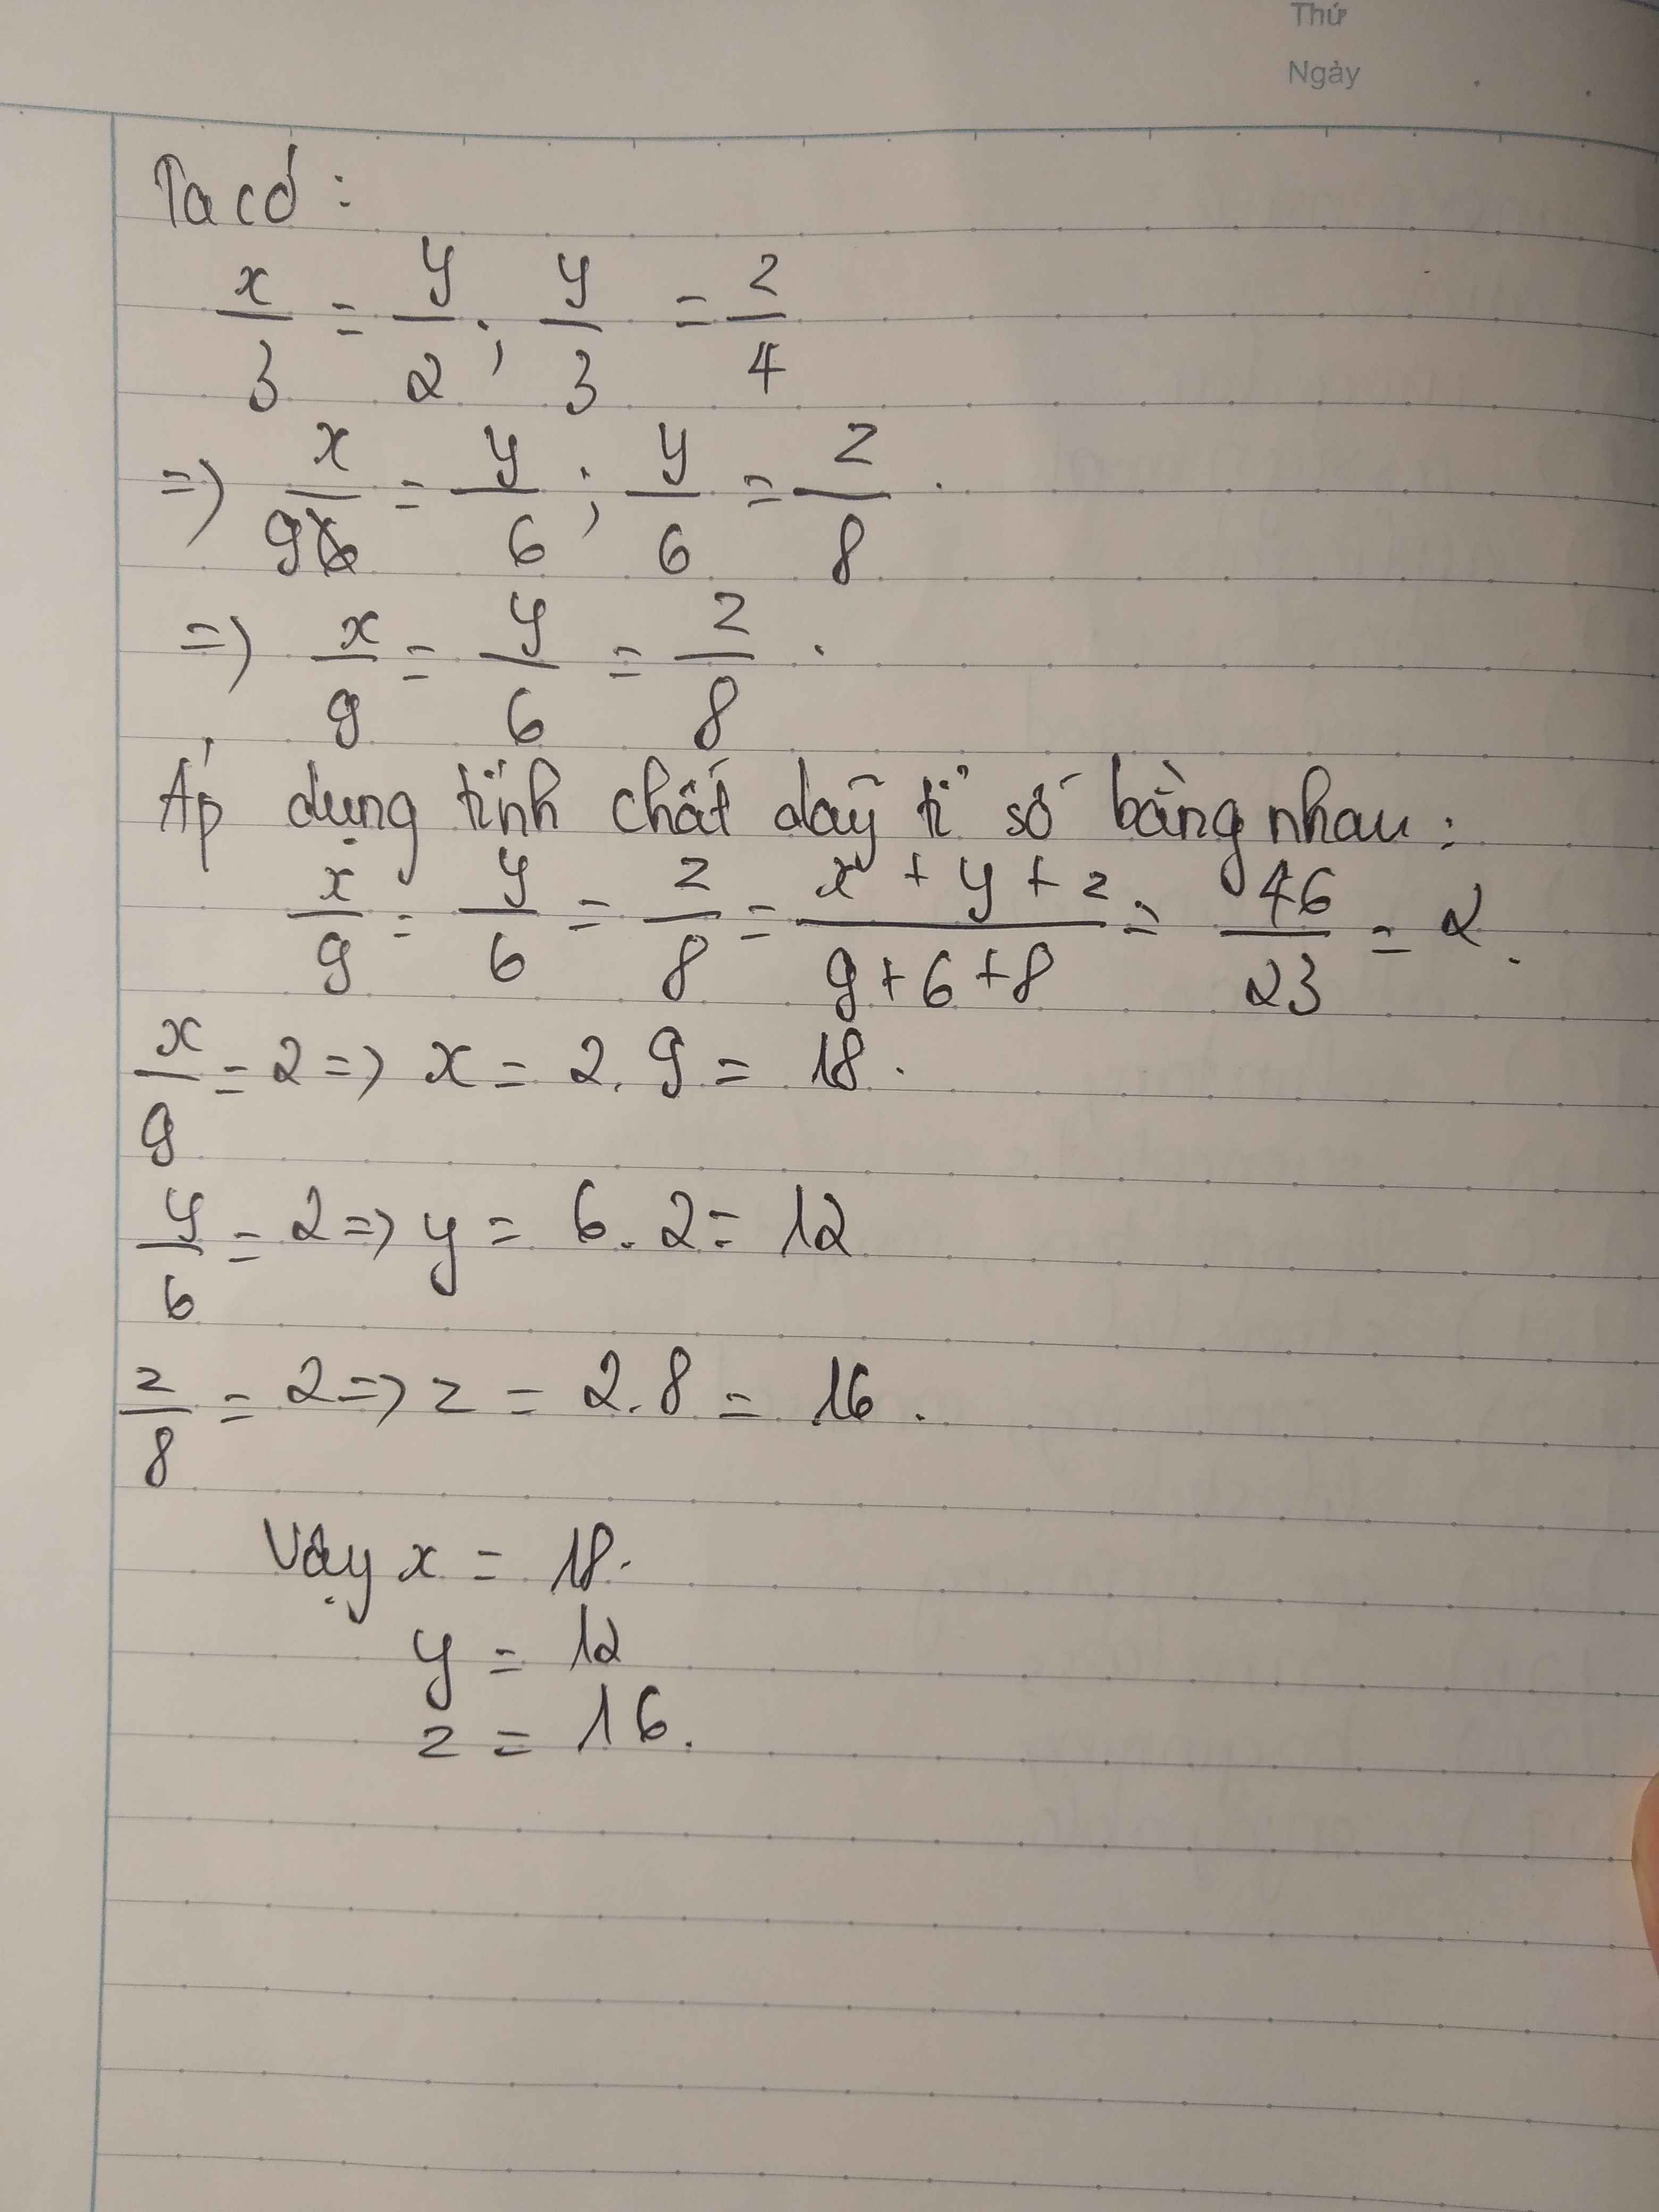 Thứ
Ngày
Ta có :
x/3 = y/2 ; y/3 = z/4
=> x/9 = y/6 ; y/6 = z/8 .
=> x/9 = y/6 = z/8 .
Áp dụng tính chất dãy tỉ số bằng nhau :
x/9 = y/6 = z/8 = x + y + z/9 + 6 + 8 = 46/23 = 2 .
x/9 = 2 => x = 2 . 9 = 18 .
y/6 = 2 => y = 6 . 2 = 12
z/8 = 2 => z = 2 . 8 = 16 .
Vậy x = 18 .
y = 12
z = 16 .